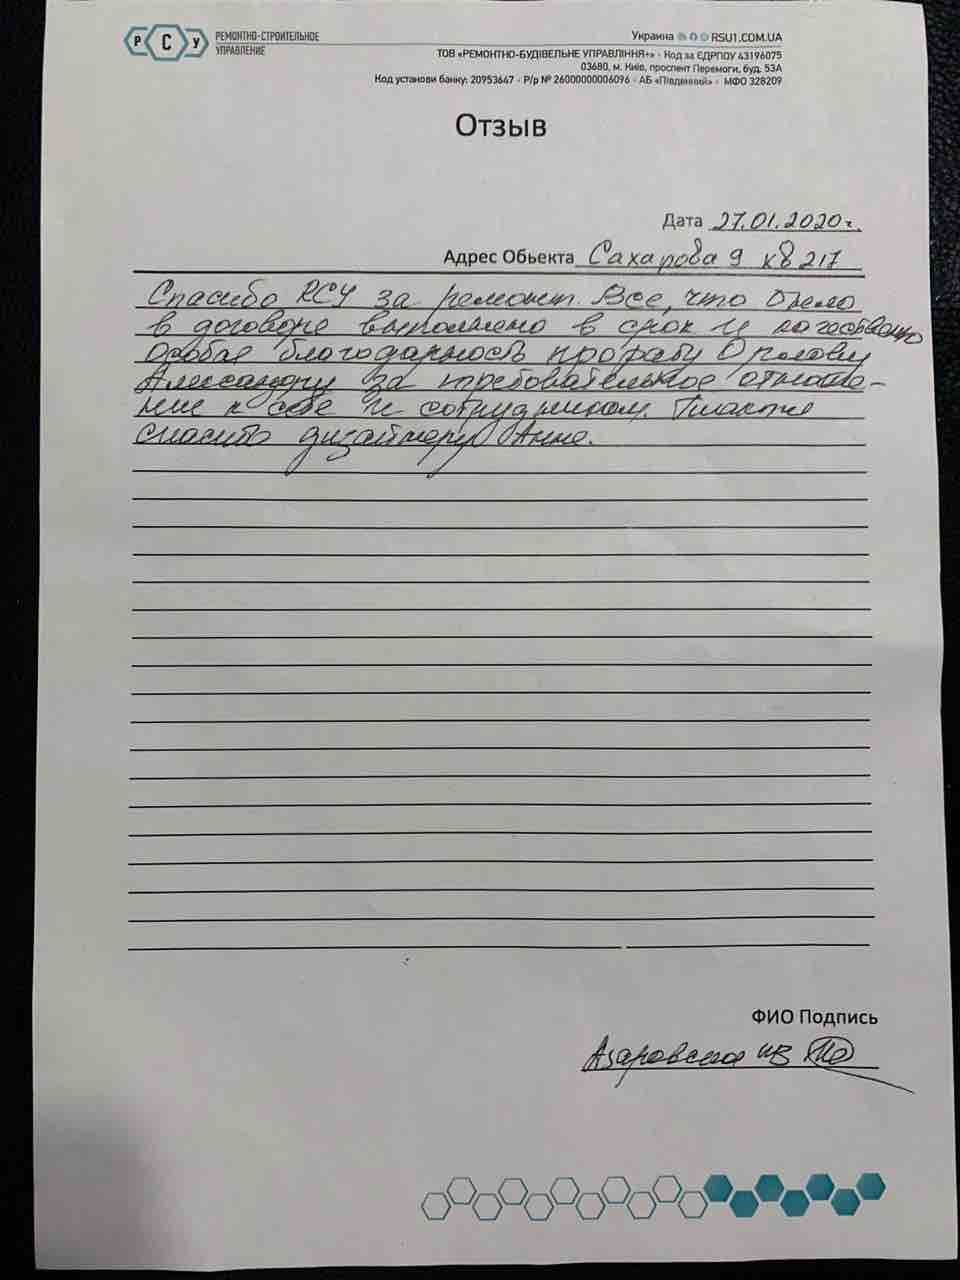 Р С У
РЕМОНТНО-СТРОИТЕЛЬНОЕ
УПРАВЛЕНИЕ
Украина RSU1.COM.UA
ТОВ «РЕМОНТНО-БУДІВЕЛЬНЕ УПРАВЛІННЯ+» · Код за ЄДРПОУ 43196075
03680, м. Київ, проспект Перемоги, буд. 53А
Код установи банку: 20953647 · Р/р № 26000000006096 · АБ «Південний» · МФО 328209
Отзыв
Дата 27.01.2020г.
Адрес Обьекта Сахарова 9 кв 217
Спасибо РСУ за ремонт. Все, что было
в договоре выполнено в срок и качественно
Особая благодарность прорабу Орлову
Александру за требовательное отноше-
ние к себе и сотрудникам. Также
спасибо дизайнеру Анне.
ФИО Подпись
Азаровская ИВ